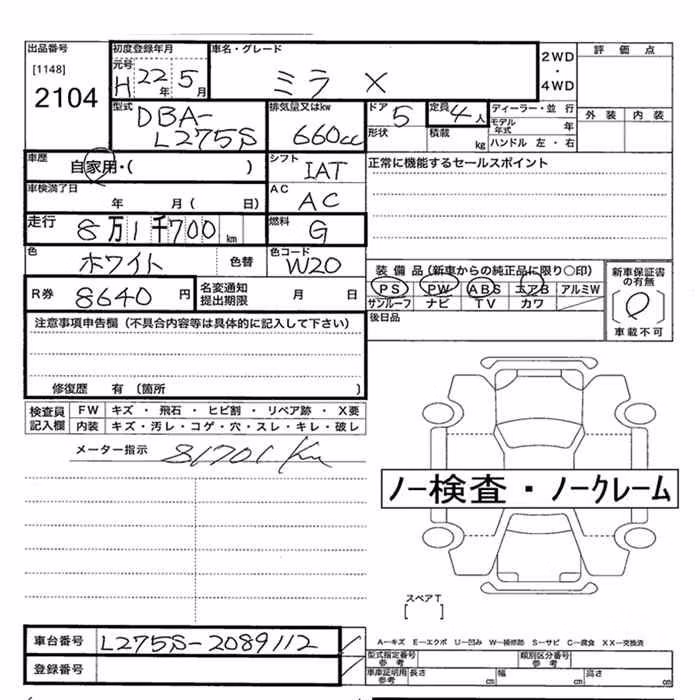 出品番号 初度登録年月 車名・グレード 2WD・4WD 評価点
[1148] 元号 H 22年 5月 ミラ X
2104
型式 DBA-L275S 排気量又はkw 660cc ドア 5 定員 4人 ディーラー・並行
形状 積載 kg モデル年式 年 外装 内装
ハンドル 左・右
車歴 自家用・( ) シフト IAT 正常に機能するセールスポイント
車検満了日 年 月( 日) AC AC
走行 8万1千700km 燃料 G
色 ホワイト 色替 色コード W20
装備品(新車からの純正品に限り○印) 新車保証書の有無
R券 8640円 名変通知提出期限 月 日 PS PW ABS エアB アルミW
サンルーフ ナビ TV カワ 〔 〕車載不可
注意事項申告欄(不具合内容等は具体的に記入して下さい) 後日品
修復歴 有 (箇所 )
検査員記入欄 FW キズ・飛石・ヒビ割・リペア跡・X要
内装 キズ・汚レ・コゲ・穴・スレ・キレ・破レ
メーター指示 81701 Km
ノー検査・ノークレーム
スペアT
[ ]
車台番号 L275S-2089112
A―キズ E―エクボ U―凹み W―補修跡 S―サビ C―腐食 XX―交換済
登録番号 型式指定番号 参考 類別区分番号 参考
車庫証明用 参考 長さ cm 幅 cm 高さ cm